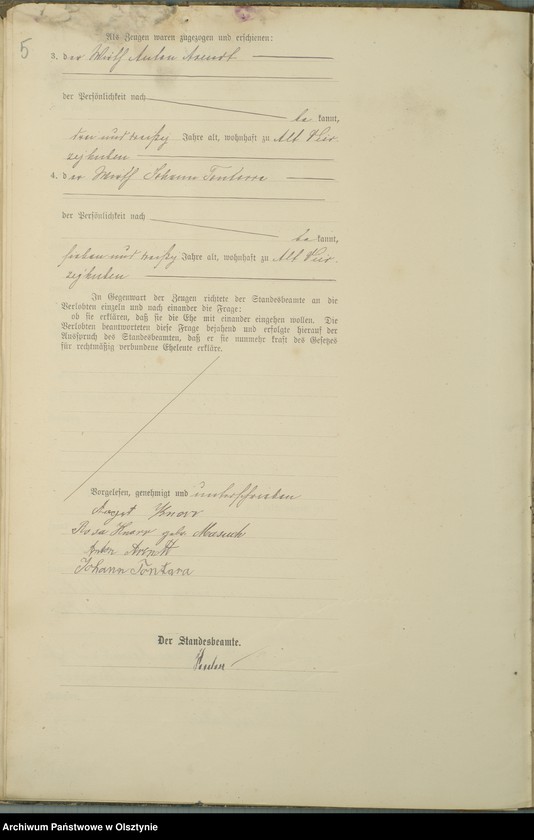 5
Als Zeugen waren zugezogen und erschienen:
3. der Wirth Anton Arendt
der Persönlichkeit nach
be kannt,
drei und dreißig Jahre alt, wohnhaft zu Alt Vier-
zighuben
4. der Wirth Johann Tontarra
der Persönlichkeit nach
be kannt,
sieben und dreißig Jahre alt, wohnhaft zu Alt Vier-
zighuben
In Gegenwart der Zeugen richtete der Standesbeamte an die
Verlobten einzeln und nach einander die Frage:
ob sie erklären, daß sie die Ehe mit einander eingehen wollen. Die
Verlobten beantworteten diese Frage bejahend und erfolgte hierauf der
Ausspruch des Standesbeamten, daß er sie nunmehr kraft des Gesetzes
für rechtmäßig verbundene Eheleute erkläre.
Vorgelesen, genehmigt und unterschrieben
August Knorr
Rosa Knorr geb. Masuch
Anton Arendt
Johann Tontara
Der Standesbeamte.
Archiwum Państwowe w Olsztynie